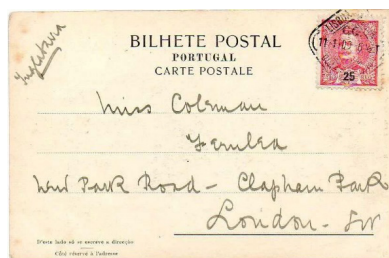 BILHETE POSTAL
PORTUGAL
CARTE POSTALE
Inglaterra
25
Miss Coleman
Ferulea
New Park Road - Clapham Park
London - SW
D'este lado só se escreve a direcção
Côté réservé à l'adresse